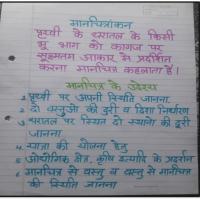 मानचित्रांकन
पृथ्वी के धरातल के किसी
भू भाग को कागज पर
सूक्ष्मतम आकार में प्रदर्शित
करना मानचित्र कहलाता है।
मानचित्र के उद्देश्य
1. पृथ्वी पर अपनी स्थिति जानना
2. दो वस्तुओं की दूरी व दिशा निर्धारण
3. धरातल पर स्थित दो स्थानों की दूरी
जानना
4. यात्रा की योजना हेतु
5. औद्योगिक क्षेत्र, कृषि इत्यादि के प्रदर्शन
6. मानचित्र से वस्तु व वस्तु से मानचित्र
की स्थिति जानना